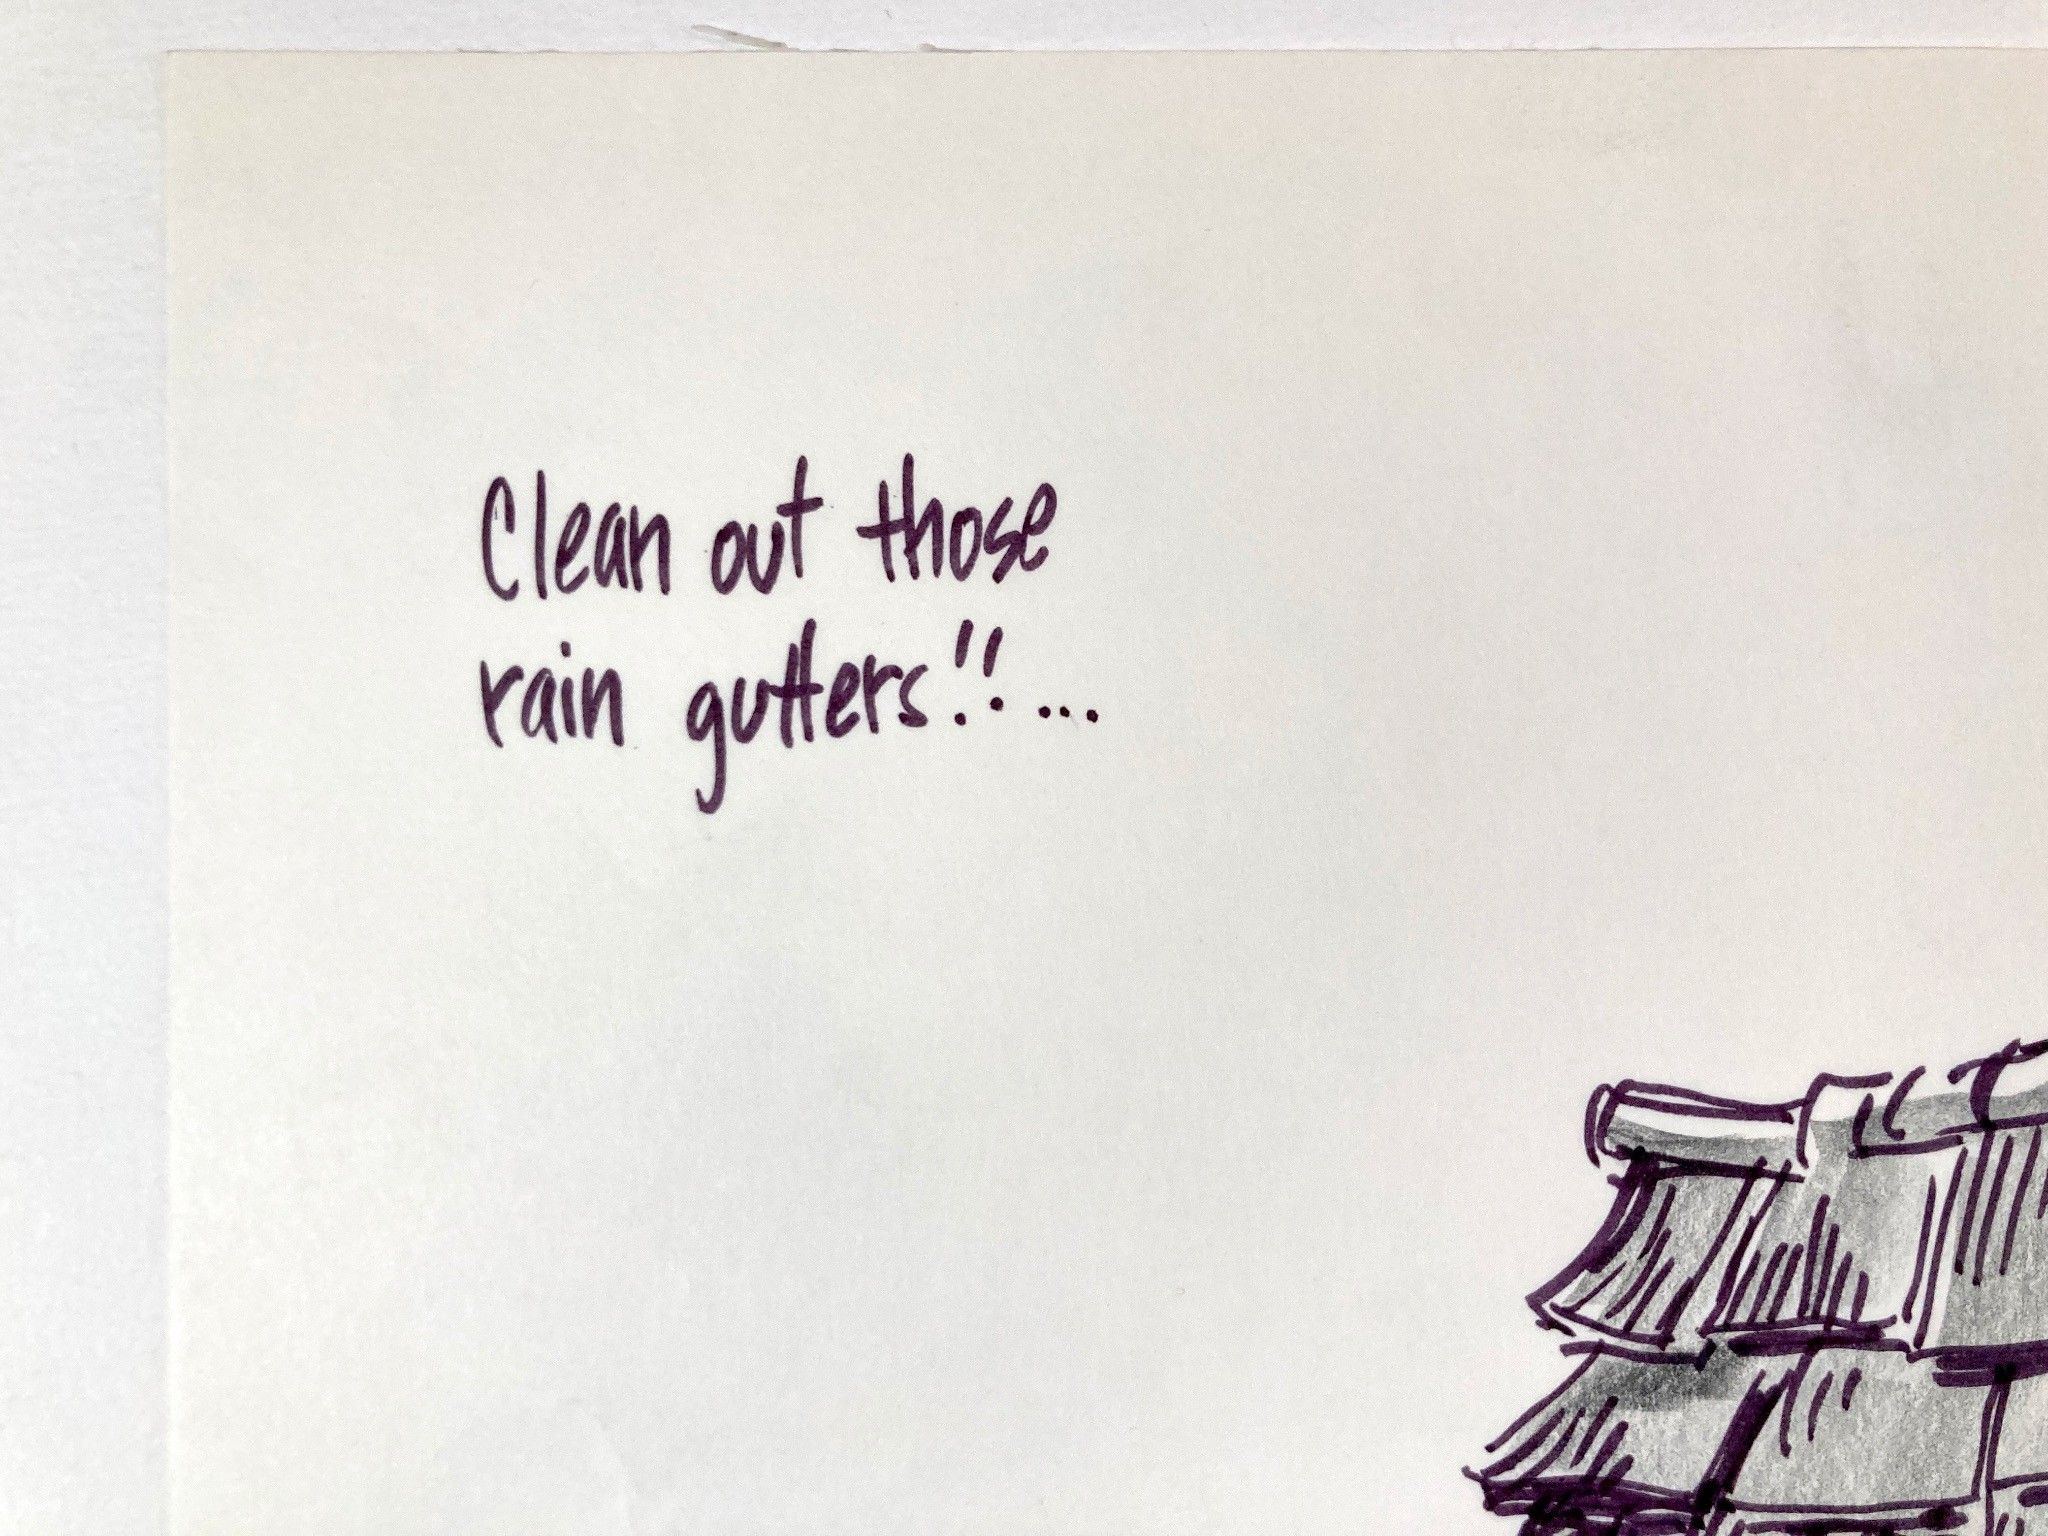 Clean out those
rain gutters!! ...